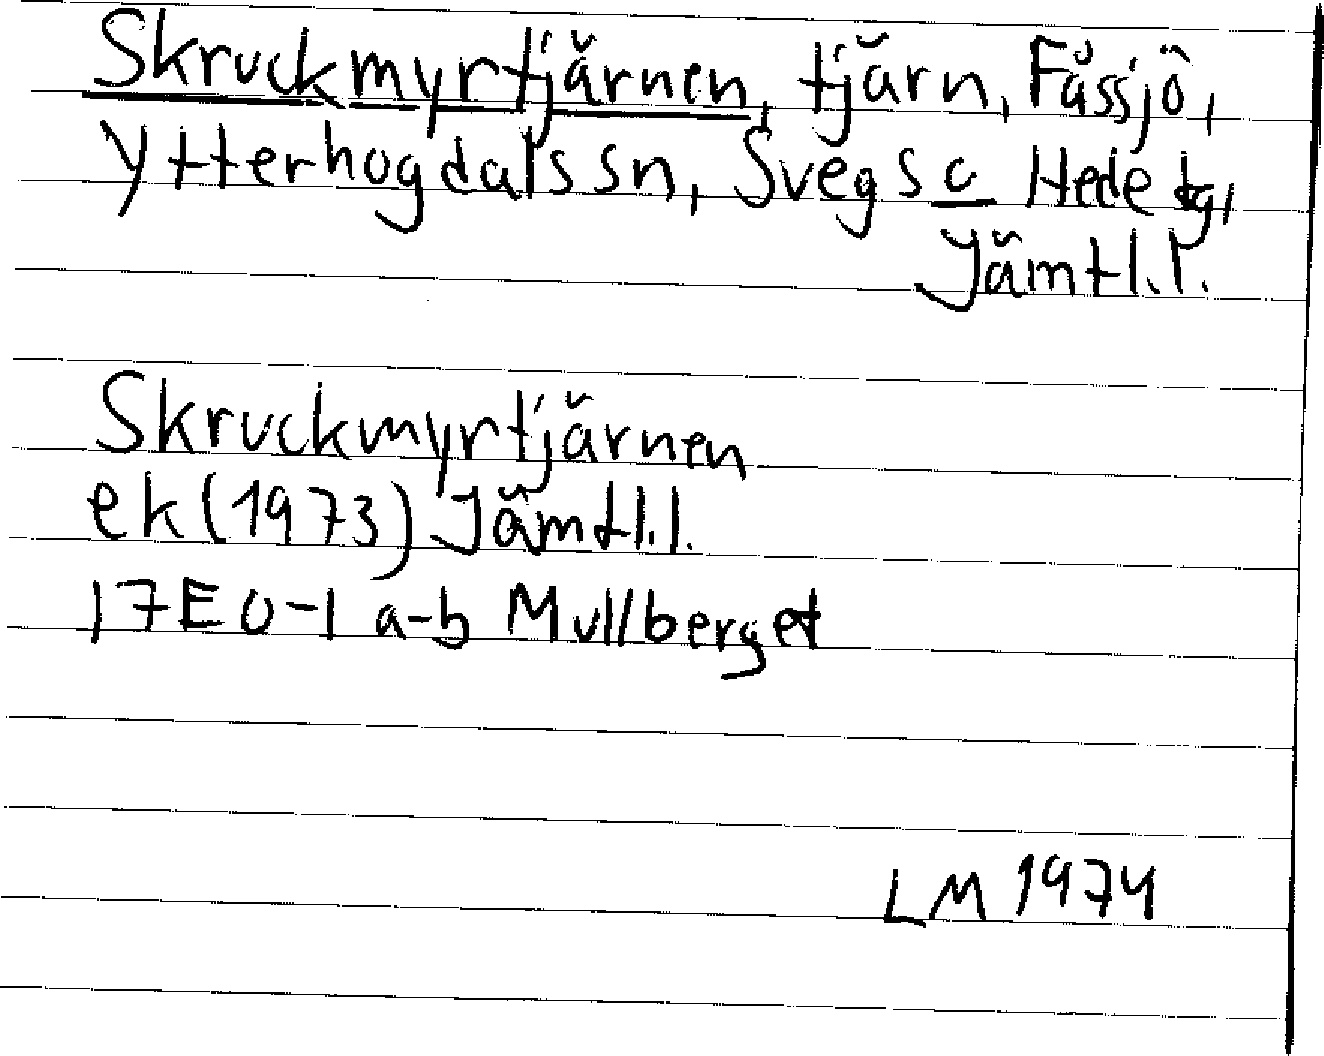 Skruckmyrtjärnen, tjärn, Fåssjö,
Ytterhogdals sn, Svegs o Hede tg,
Jämtl.l.
Skruckmyrtjärnen
ek (1973) Jämtl.l.
17E 0-1 a-b Mullberget
LM 1974